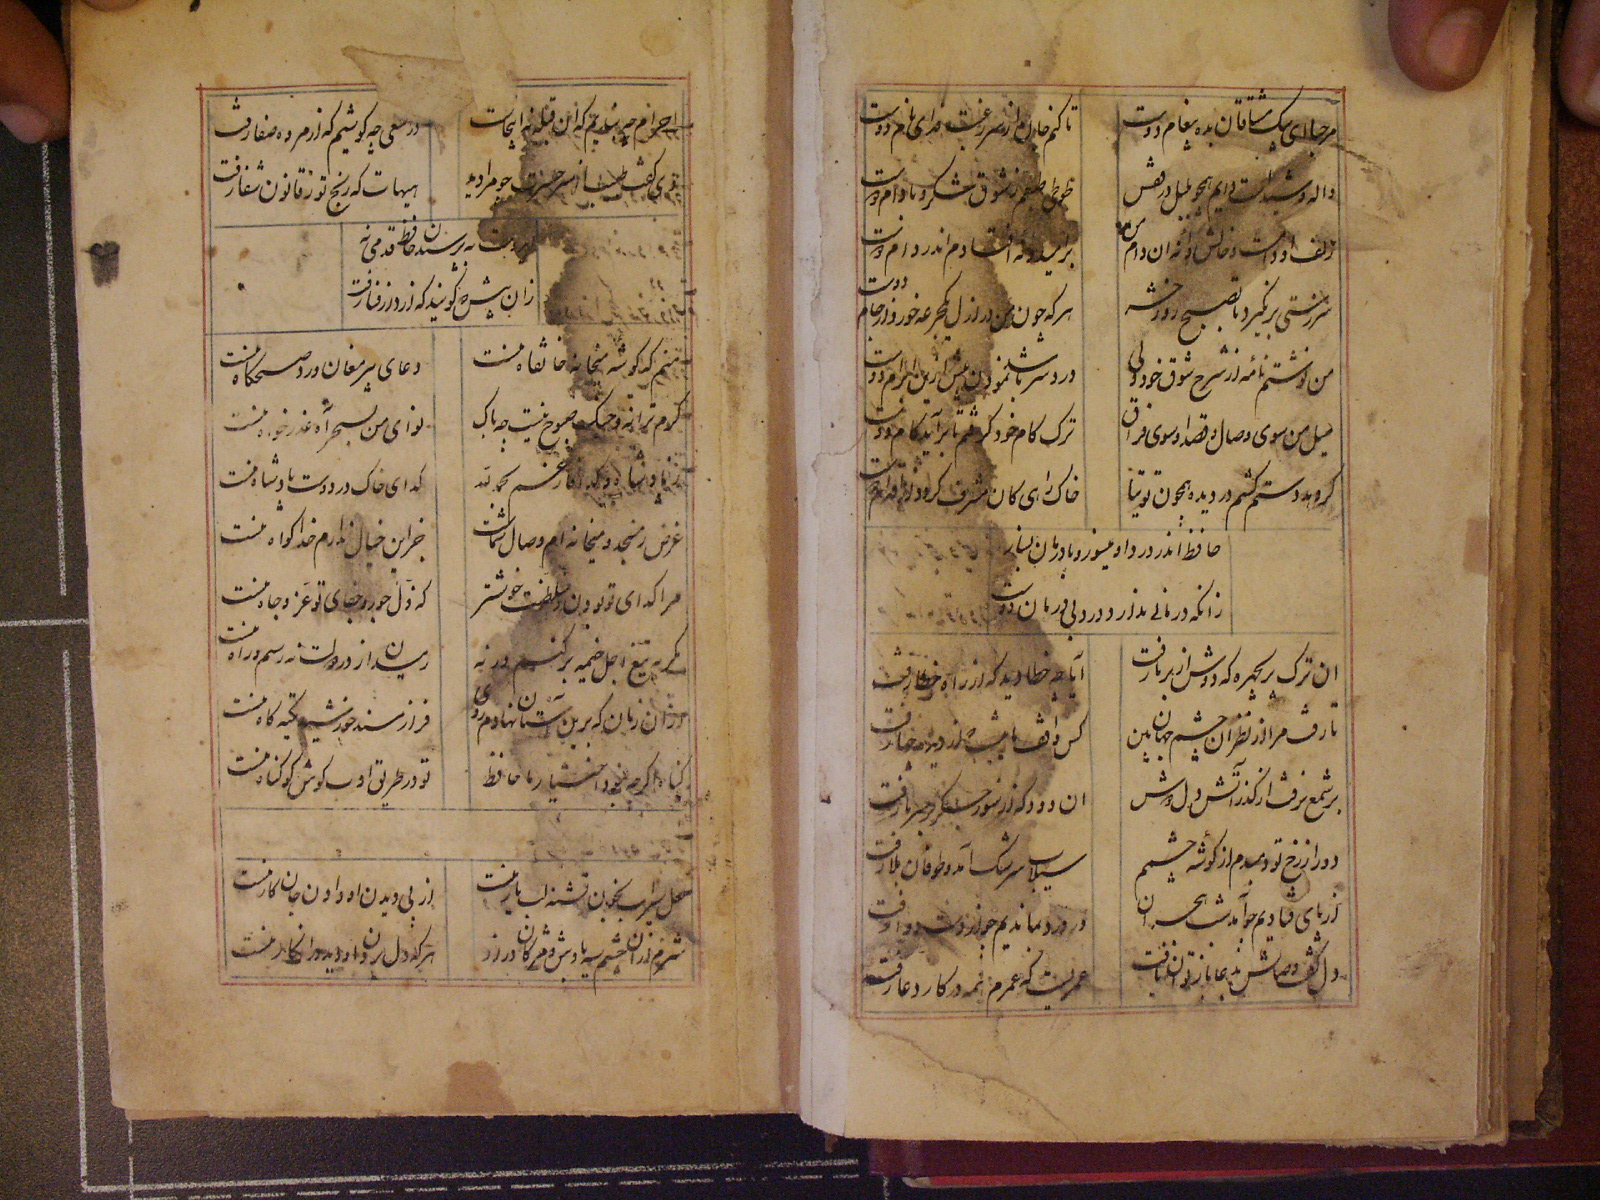 مرحبا ای پیک مشتاقان بده پیغام دوست تا کنم جان از سر رغبت فدای نام دوست
واله و شیداست دایم همچو بلبل در قفس طوطی طبعم ز شوق شکر و بادام دوست
زلف او دامست و خالش دانه ان دام و من بر امید دانه افتادم اندر دام دوست
سر ز مستی بر نگیرد تا بصبح روز حشر هر که چون من در ازل یک جرعه خورد از جام دوست
من نوشتم نامهٔ از شرح شوق خود ولی درد سر باشد نمودن بیش ازین ابرام دوست
میل من سوی وصال و قصد او سوی فراق ترک کام خود گرفتم تا برآید کام دوست
گر دهد دستم کشم در دیده همچون توتیا خاک راهی کان مشرف گردد از اقدام دوست
حافظ اندر درد او میسوز و با درمان بساز
زانکه درمانی ندارد درد بی درمان دوست
ان ترک پریچهره که دوش از بر ما رفت آیا چه خطا دید که از راه خطا رفت
تا رفت مرا از نظر آن چشم جهان بین کس واقف ما نیست که از دیده چها رفت
بر شمع نرفت از گذر آتش دل دوش ان دود که از سوز جگر بر سر ما رفت
دور از رخ تو دمبدم از گوشه چشمم سیلاب سرشک آمد و طوفان بلا رفت
از پای فتادیم چو آمد شب هجران در درد بماندیم چو از دست دوا رفت
دل گفت وصالش بدعا باز توان یافت عمریست که عمرم همه در کار دعا رفت
احرام چه بندیم که ان قبله نه اینجاست در سعی چه کوشیم که از مروه صفا رفت
دی گفت طبیب از سر حسرت چو مرا دید هیهات که رنج تو ز قانون شفا رفت
ای دوست به پرسیدن حافظ قدمی نه
زان پیش که گویند که از دار فنا رفت
منم که گوشه میخانه خانقاه منست دعای پیر مغان ورد صبحگاه منست
گرم ترانه و چنگ صبوح نیست چه باک نوای من بسحر آه عذر خواه منست
ز پادشاه و گدا فارغم بحمد لله گدای خاک در دوست پادشاه منست
غرض ز مسجد و میخانه ام وصال شماست جز این خیال ندارم خدا گواه منست
مرا گدای تو بودن ز سلطنت خوشتر که ذل جور و جفای تو عز و جاه منست
مگر به تیغ اجل خیمه بر کنم ور نه رمیدن از در دولت نه رسم و راه منست
از ان زمان که برین آستان نهادم روی فراز مسند خورشید تکیه گاه منست
گناه اگر چه نبود اختیار ما حافظ تو در طریق ادب کوش گو گناه منست
لعل سیراب بخون تشنه لب یار منست از پی دیدن او دادن جان کار منست
شرم از ان چشم سیه بادش و مژگان دراز هر که دل بردن او دید و در انکار منست